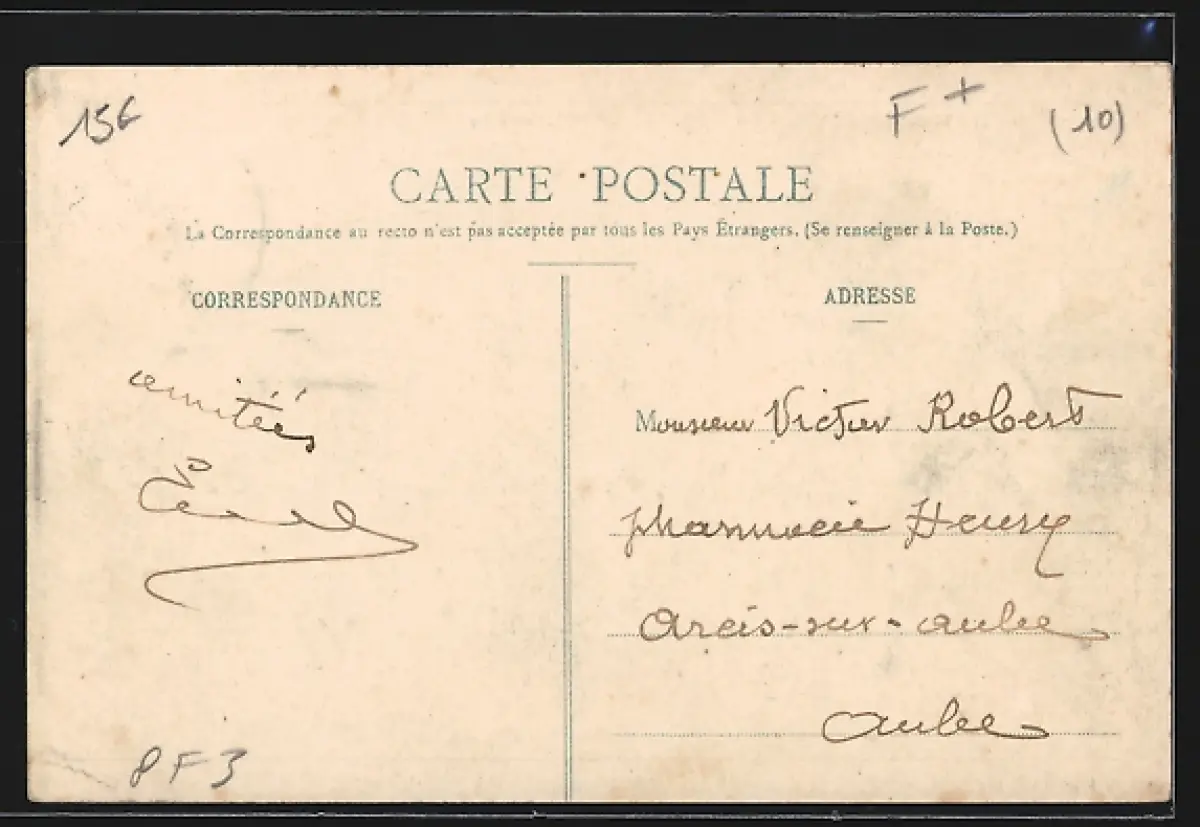 156
F+
(10)
CARTE POSTALE
La Correspondance au recto n'est pas acceptée par tous les Pays Étrangers. (Se renseigner à la Poste.)
CORRESPONDANCE
amitiés
8 F 3
ADRESSE
Monsieur Victor Robert
pharmacie Henry
Arcis-sur-aube
aube